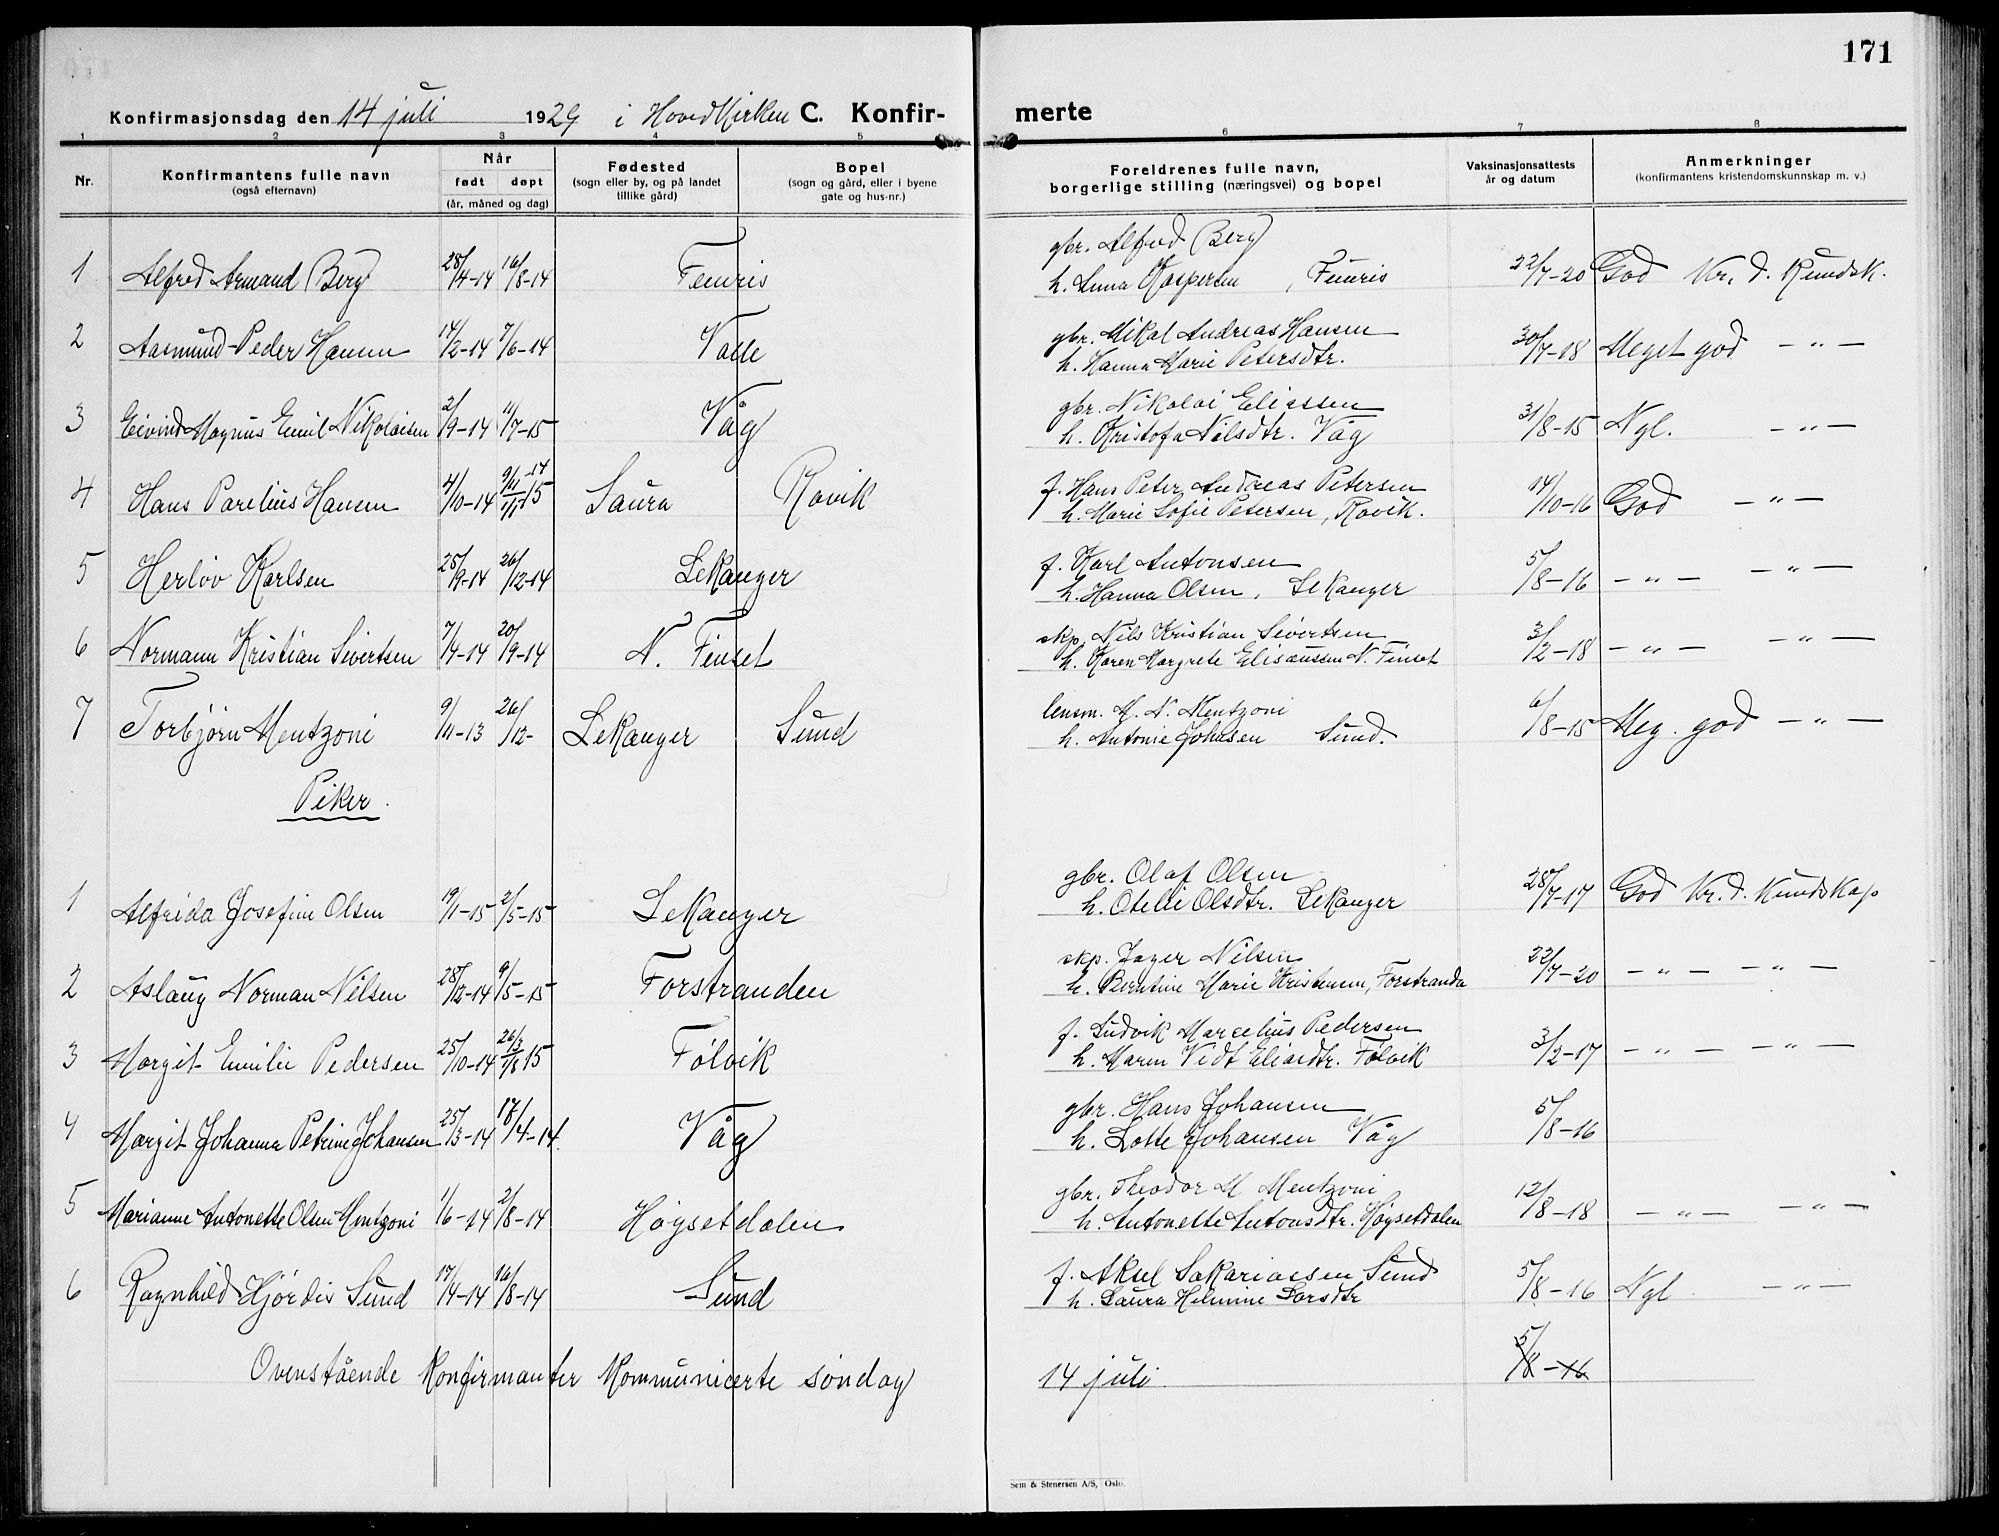 171
Konfirmasjonsdag den 14 juli 1929 i Hovedkirken C. Konfirmerte
1 2 3 4 5 6 7 8
Nr. Konfirmantens fulle navn (også efternavn) Når født døpt (år, måned og dag) Fødested (sogn eller by, og på landet tillike gård) Bopel (sogn og gård, eller i byene gate og hus-nr.) Foreldrenes fulle navn, borgerlige stilling (næringsvei) og bopel Vaksinasjonsattests år og datum Anmerkninger (konfirmantens kristendomskunnskap m. v.)
gbr. Alfred Berg
1 Alfred Armand Berg 28/4-14 16/8-14 Fenris h. Anna Kaspersen, Fenris 22/7-20 God Kr. d. Kundsk.
gbr. Mikal Andreas Hansen
2 Aasmund Peder Hansen 14/2-14 7/6-14 Valle h. Hanna Marie Petersdtr. 30/7-18 Meget god - " -
gbr. Nikolai Eliassen
3 Eivind Magnus Emil Nikolaisen 2/9-14 11/7-15 Våg h. Kristofa Nilsdtr. Våg 31/8-15 Ngl. - " -
f. Hans Peter Andreas Petersen
4 Hans Parelius Hansen 4/10-14 9/11-14 1/1 15 Saura Rovik h. Marie Sofie Petersen, Rovik. 14/10-16 God - " -
f. Karl Antonsen
5 Herløv Karlsen 28/9-14 26/12-14 Lekanger h. Hanna Olsen, Lekanger 5/8-16 - " - - " -
skp. Nils Kristian Sivertsen
6 Normann Kristian Sivertsen 7/4-14 20/9-14 N. Finset h. Karen Margrete Elisaussen N. Finset 3/2-18 - " - - " -
lensm. M. N. Mentzoni
7 Torbjørn Mentzoni 9/11-13 26/12- Lekanger Sund h. Antonie Johnsen Sund. 6/8-15 Meg. god - " -
Piker.
gbr. Olaf Olsen
1 Alfrida Josefine Olsen 19/1-15 2/5-15 Lekanger h. Otelie Olsdtr. Lekanger 28/7-17 God Kr. d. Kundskap
skp. Jager Nilsen
2 Aslaug Norman Nilsen 28/12-14 9/5-15 Forstranden h. Berntine Marie Kristensen, Forstranda 22/7-20 - " - - " -
f. Ludvik Marcelius Pedersen
3 Margit Emilie Pedersen 25/10-14 26/3 1/8 15 Følvik h. Maren Vidt Eliasdtr. Følvik 3/2-17 - " - - " -
gbr. Hans Johansen
4 Margit Johanna Petrine Johansen 25/3-14 17/4-14. Våg h. Lotte Johansen Våg 5/8-16
gbr. Theodor M Mentzoni
5 Marianne Antonette Olsen Mentzoni 1/6-14 2/8-14 Høgsetdalen h. Antonette Antonsdtr. Høgsetdalen 12/8-18 - " - - " -
f. Aksel Sakariassen Sund
6 Ragnhild Hjørdis Sund 17/4-14 16/8-14 Sund h. Laura Helmine Larsdtr 5/8-16 Ngl. - " -
5/8-16
Ovenstående Konfirmanter Kommunicerte søndag 14 juli.
Sem & Stenersen A/S, Oslo.